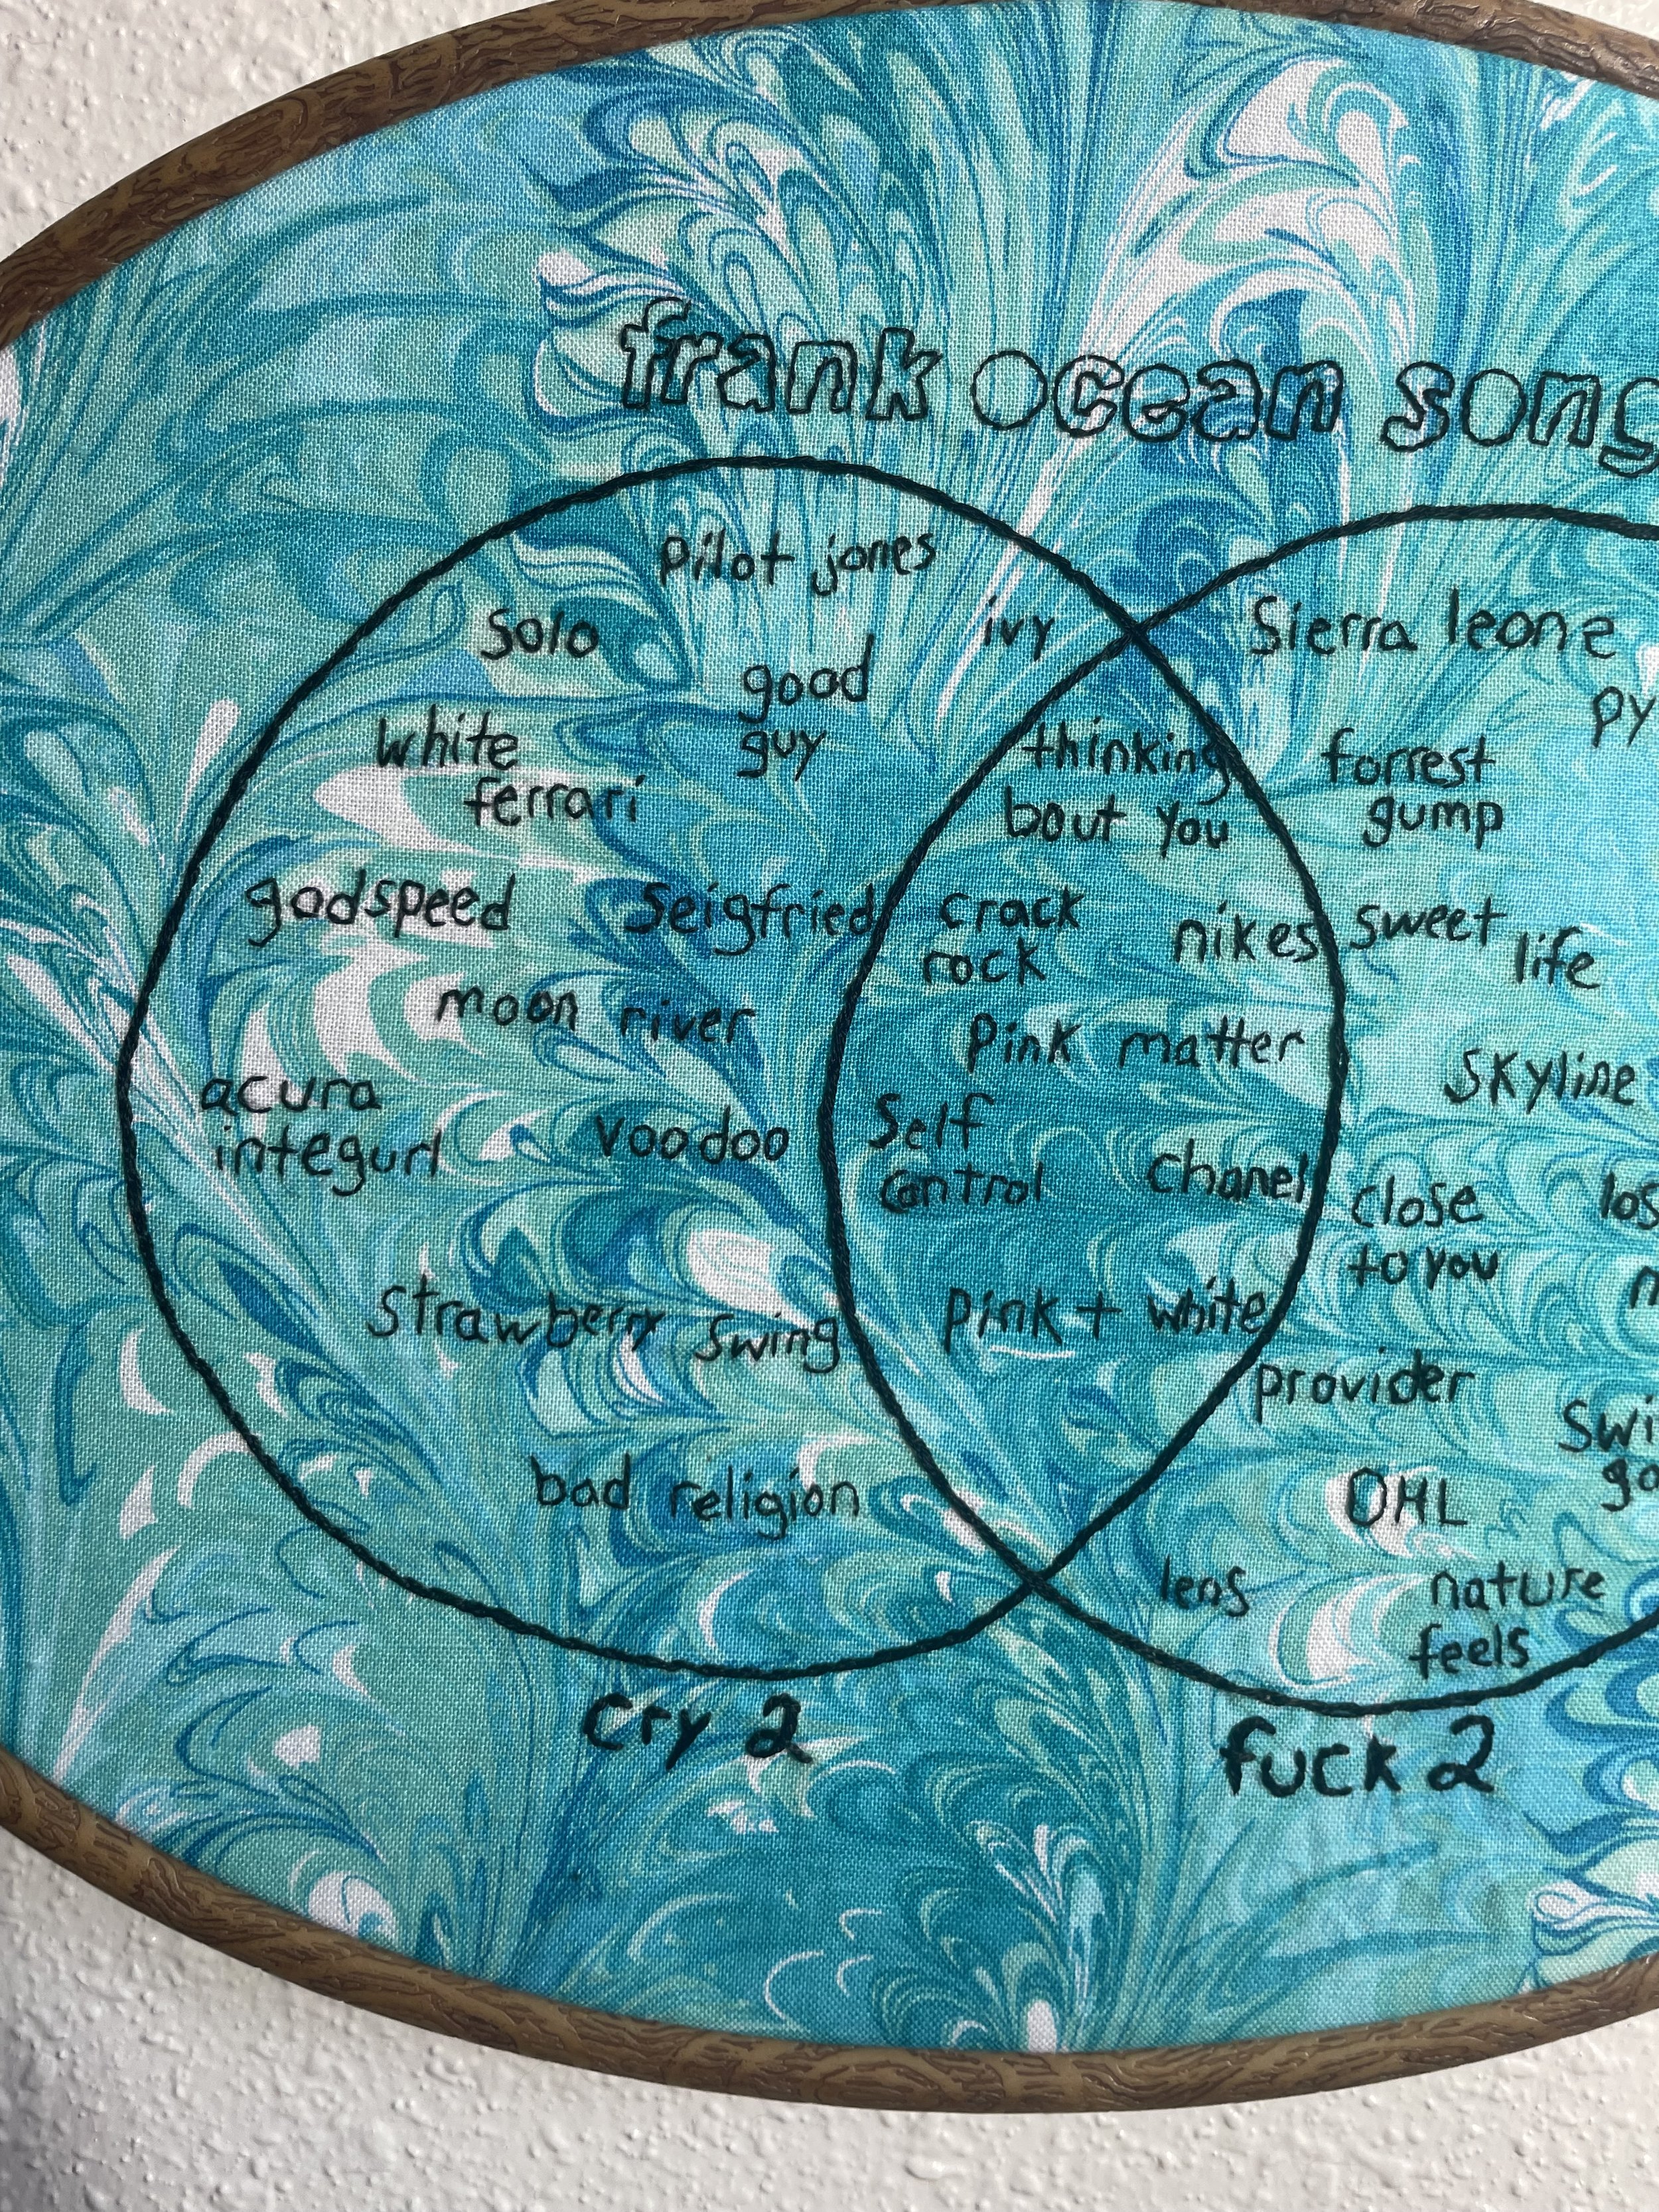 frank ocean song
pilot jones
solo
ivy
good
guy
white
ferrari
godspeed
Seigfried
moon river
acura
integurl
voodoo
strawberry swing
bad religion
thinking
bout you
crack
rock
nikes
pink matter
Self
control
chanel
pink + white
Sierra leone
py
forrest
gump
sweet
life
Skyline
close
to you
los
provider
Swi
go
DHL
lens
nature
feels
cry 2
fuck 2